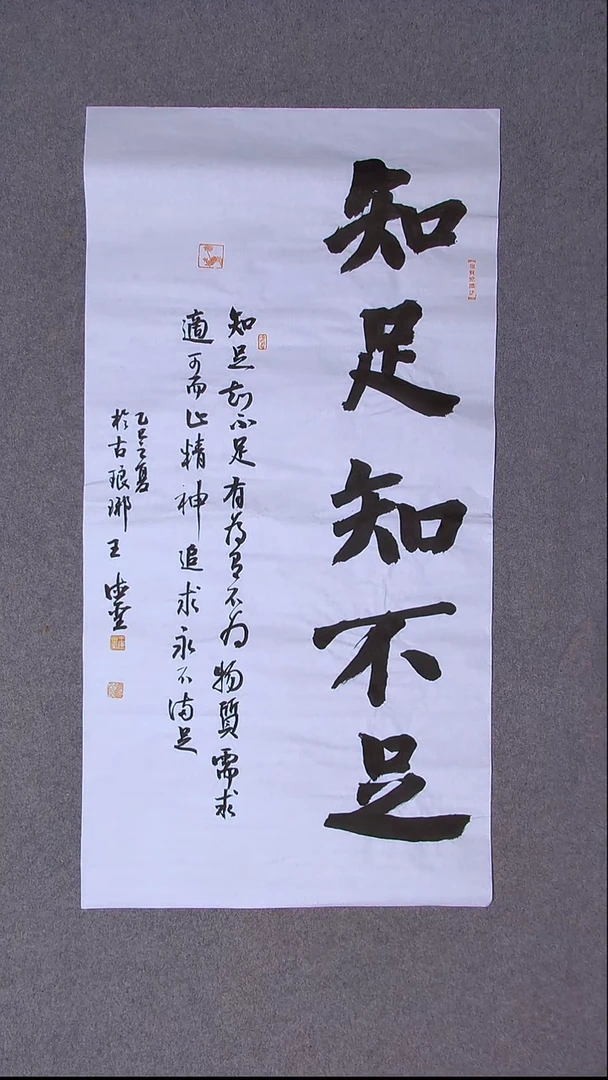 知足知不足
知足知不足有為有不为物質需求
適可而止精神追求永不满足
乙巳之夏
於古琅琊王